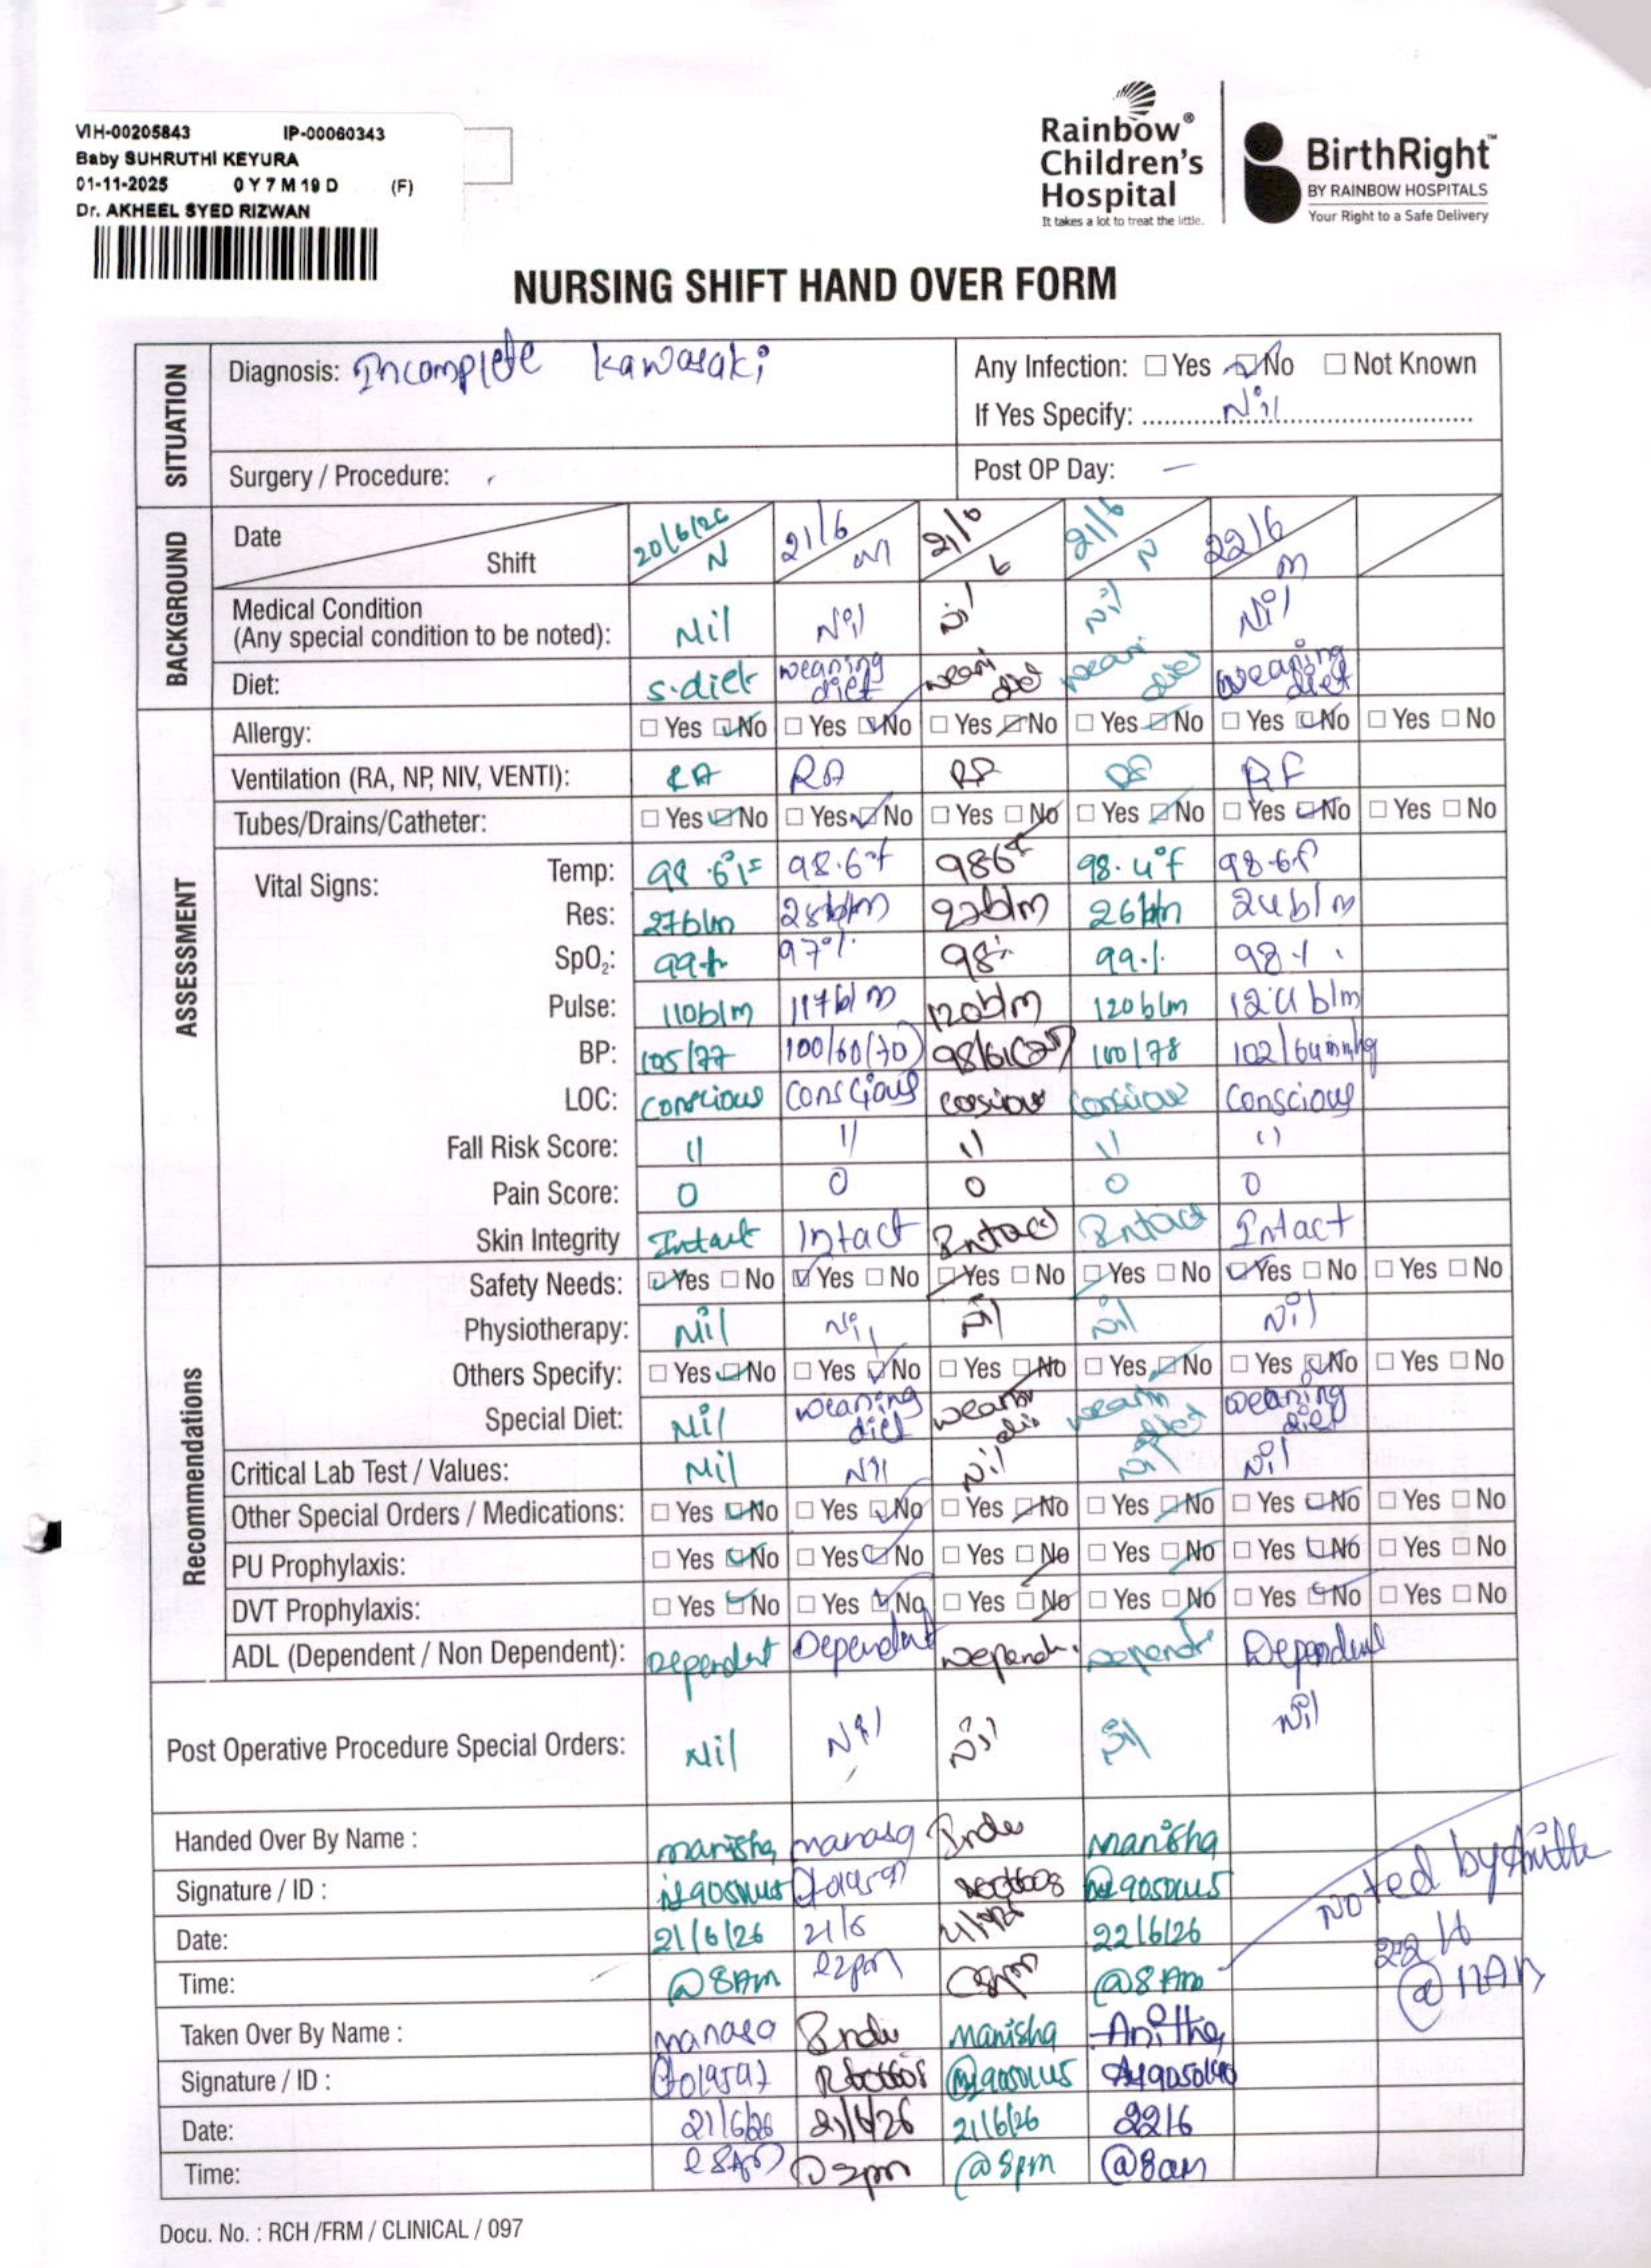 VIH-00205843 IP-00060343
Baby SUHRUTHI KEYURA
01-11-2025 0 Y 7 M 19 D (F)
Dr. AKHEEL SYED RIZWAN
Rainbow® Children's Hospital
It takes a lot to treat the little.
BirthRight™
BY RAINBOW HOSPITALS
Your Right to a Safe Delivery
NURSING SHIFT HAND OVER FORM
SITUATION
Diagnosis: Incomplete Kawasaki
Any Infection: ☐ Yes ☑ No ☐ Not Known
If Yes Specify: Nil
Surgery / Procedure:
Post OP Day: —
BACKGROUND
Date 20/6/26 21/6 21/6 21/6 22/6
Shift N M N m
Medical Condition
(Any special condition to be noted): Nil Nil Nil Nil Nil
Diet: s.diet weaning diet weani diet weani diet weaning diet
ASSESSMENT
Allergy: ☐ Yes ☑ No ☐ Yes ☑ No ☐ Yes ☑ No ☐ Yes ☑ No ☐ Yes ☑ No ☐ Yes ☐ No
Ventilation (RA, NP, NIV, VENTI): RA RA RA
Tubes/Drains/Catheter: ☐ Yes ☑ No ☐ Yes ☑ No ☐ Yes ☑ No ☐ Yes ☑ No ☐ Yes ☑ No ☐ Yes ☐ No
Vital Signs:
Temp: 98.6°F 98.6°f 986°f 98.4°f 98.6f
Res: 27b/m 28b/m 22b/m 26b/m 24b/m
SpO₂: 99% 97% 98% 99% 98%
Pulse: 110b/m 117b/m 120b/m 120b/m 124b/m
BP: 105/77 100/60(70) 98/61 100/78 102/64mmhg
LOC: Conscious Conscious cosious Conscious Conscious
Fall Risk Score: 11 11 11 11 11
Pain Score: 0 0 0 0 0
Skin Integrity Intact Intact Intact Intact Intact
Recommendations
Safety Needs: ☑ Yes ☐ No ☑ Yes ☐ No ☑ Yes ☐ No ☑ Yes ☐ No ☑ Yes ☐ No ☐ Yes ☐ No
Physiotherapy: Nil Nil Nil Nil Nil
Others Specify: ☐ Yes ☑ No ☐ Yes ☑ No ☐ Yes ☑ No ☐ Yes ☑ No ☐ Yes ☑ No ☐ Yes ☐ No
Special Diet: Nil weaning diet weanin weanin diet weaning diet
Critical Lab Test / Values: Nil Nil Nil Nil Nil
Other Special Orders / Medications: ☐ Yes ☑ No ☐ Yes ☑ No ☐ Yes ☑ No ☐ Yes ☑ No ☐ Yes ☑ No ☐ Yes ☐ No
PU Prophylaxis: ☐ Yes ☑ No ☐ Yes ☑ No ☐ Yes ☑ No ☐ Yes ☑ No ☐ Yes ☑ No ☐ Yes ☐ No
DVT Prophylaxis: ☐ Yes ☑ No ☐ Yes ☑ No ☐ Yes ☑ No ☐ Yes ☑ No ☐ Yes ☑ No ☐ Yes ☐ No
ADL (Dependent / Non Dependent): Dependent Dependent Dependent
Post Operative Procedure Special Orders: Nil Nil Nil Nil Nil
Handed Over By Name : manisha manasa Indu Manisha
Signature / ID :
Date: 21/6/26 21/6 22/6/26
Time: @8AM @2pm @8pm @8Am
noted by
22/6
@ 11AM
Taken Over By Name : manasa Indu Manisha Anitha
Signature / ID :
Date: 21/6/26 21/6/26 21/6/26 22/6
Time: @8AM @2pm @8pm @8am
Docu. No. : RCH /FRM / CLINICAL / 097